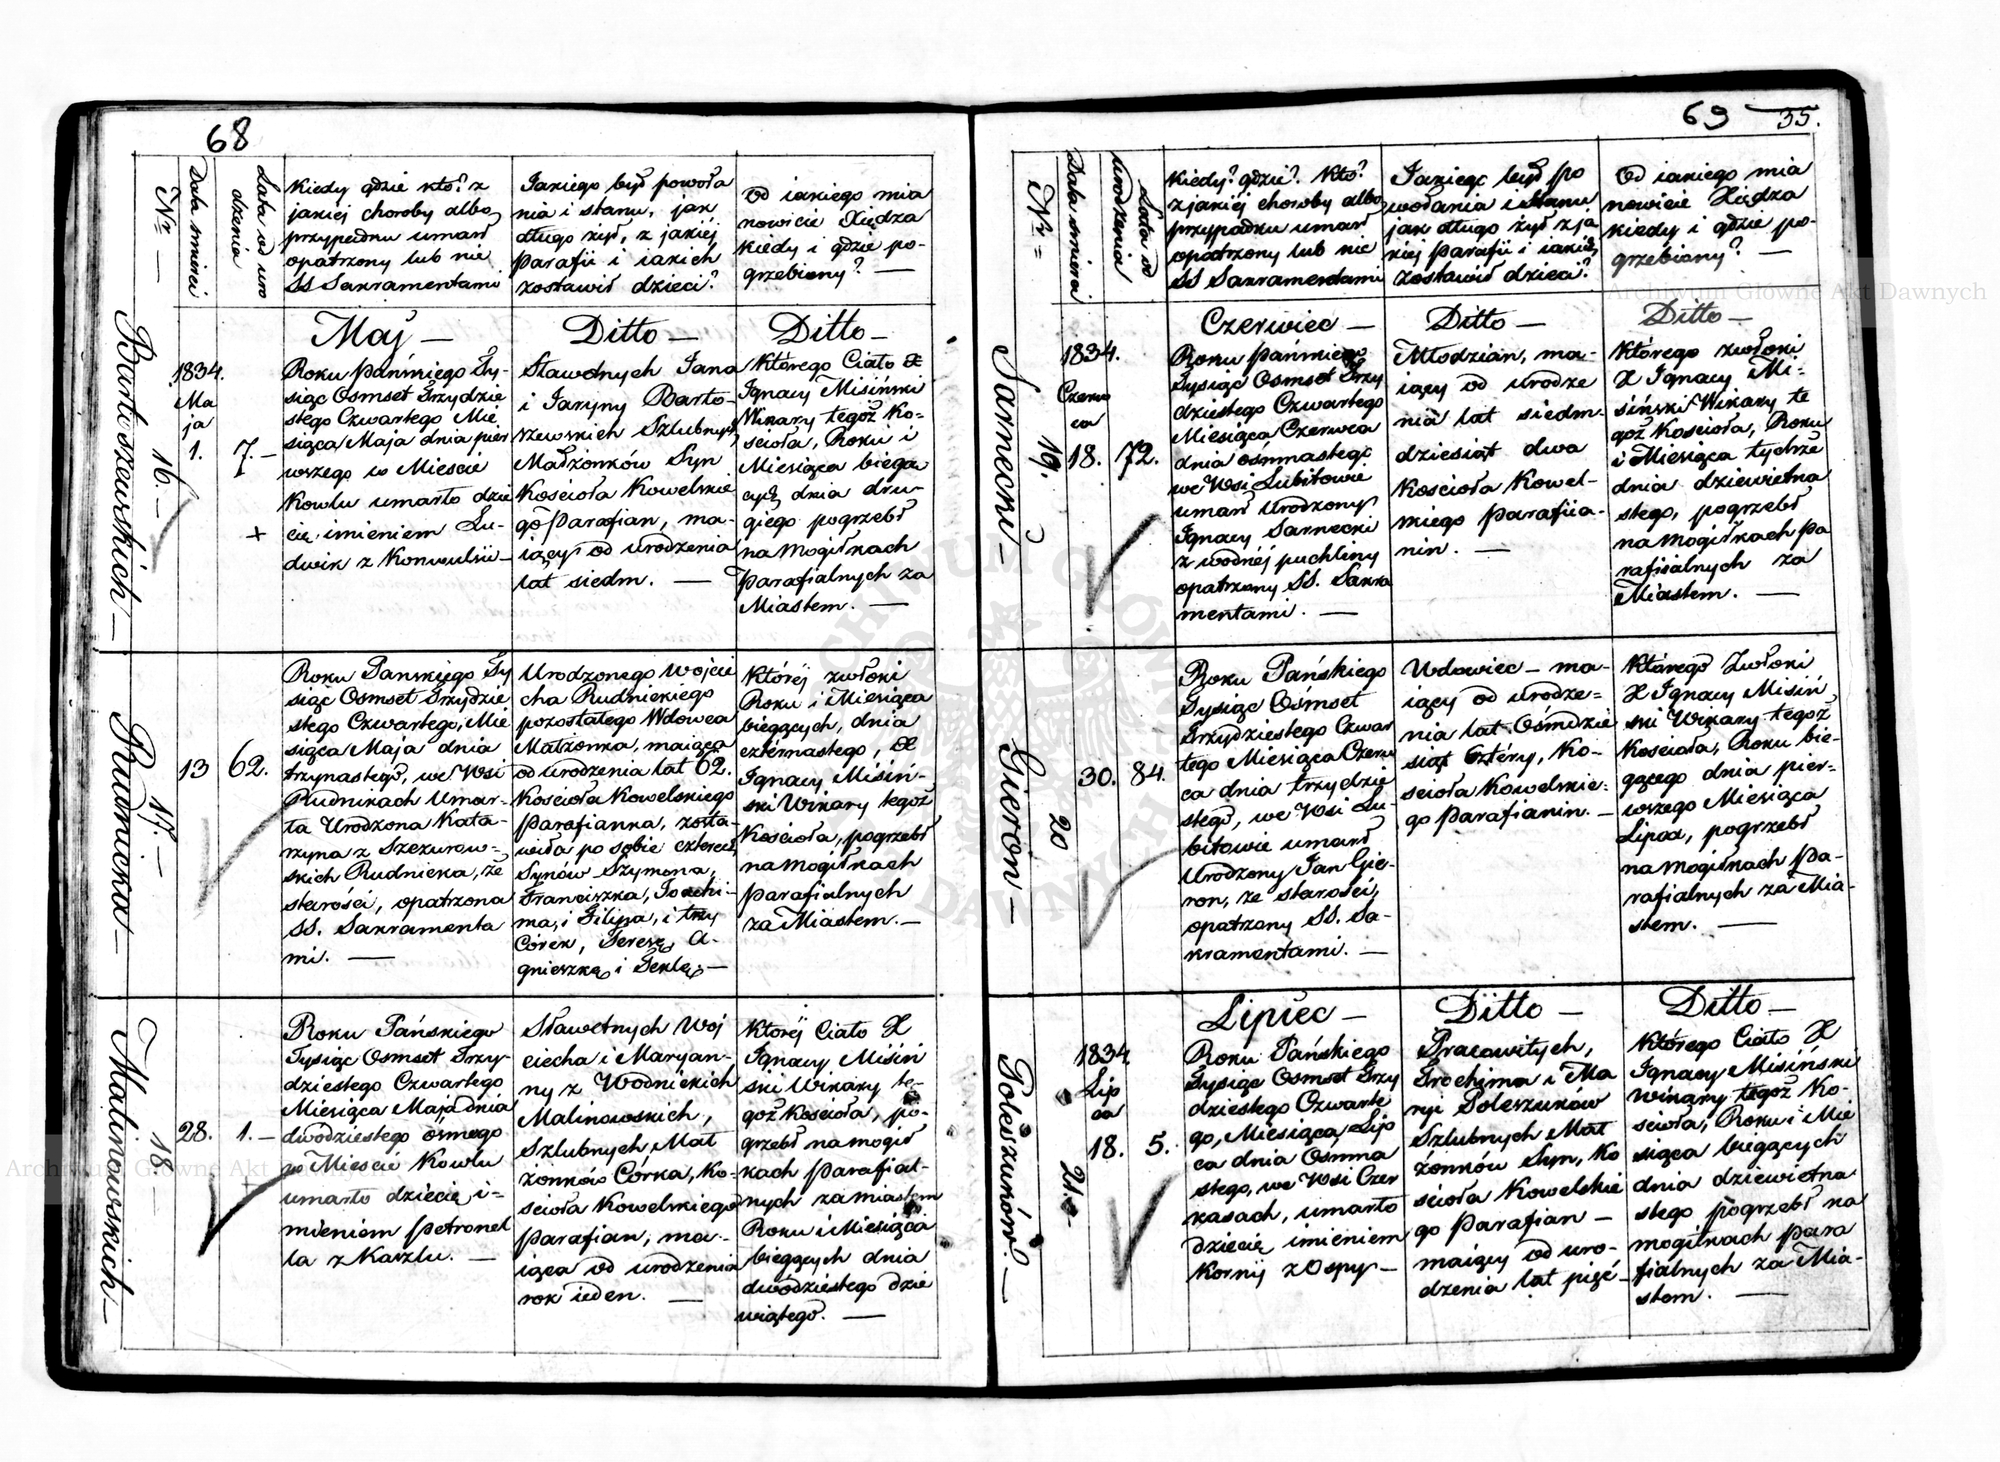 68
Nr —
Data śmierci
Lata od uro
dzenia
Kiedy gdzie kto? z
jakiej choroby albo
przypadku umarł
opatrzony lub nie
SS Sakramentami
Jakiego był powoła
nia i stanu, jak
długo żył, z jakiej
Parafii i iakich
zostawił dzieci?
Od iakiego mia
nowicie Xiędza
kiedy i gdzie po-
grzebiony? —
Bartoszewskich —
16. —
1834.
Ma
ja
1.
7. —
+
Maj —
Roku Pańskiego Ty-
siąc Osmset Trzydzie
stego Czwartego Mie
siąca Maja dnia pier
wszego w Mieście
Kowlu umarło dzie
cię imieniem Lu-
dwik z Konwulsii —
Ditto —
Sławetnych Jana
i Jaryny Barto-
szewskich Szlubnych
Małżonków Syn
Kościoła Kowelskie
go Parafian, ma-
iący od urodzenia
lat siedm. —
Ditto —
Którego Ciało X
Ignacy Misiński
Wikary tegoż Ko-
ścioła, Roku i
Miesiąca bieżą
cych dnia dru-
giego pogrzebł
na Mogiłkach
Parafialnych za
Miastem. —
Rudnicka —
17. —
13
62.
Roku Panskiego Ty
siąc Osmset Trzydzie
stego Czwartego, Mie
siąca Maja dnia
trzynastego, we Wsi
Rudnikach Umar-
ła Urodzona Kata-
rzyna z Szczurow-
skich Rudnicka, ze
starości, opatrzona
SS. Sakramenta
mi. —
Urodzonego Wojcie
cha Rudnickiego
pozostałego Wdowca
Małżonka, maiąca
od urodzenia lat 62.
Kościoła Kowelskiego
Parafianka, zosta-
wiła po sobie czterech
Synów Szymona,
Franciszka, Joachi-
ma, i Filipa, i trzy
Córek, Teresę, A-
gnieszkę i Teklę, —
Której zwłoki
Roku i Miesiąca
bieżących, dnia
czternastego, X
Ignacy Misiń-
ski Wikary tegoż
Kościoła, pogrzebł
na Mogiłkach
Parafialnych
za Miastem. —
Malinowskich —
18. —
28.
1. —
Roku Pańskiego
Tysiąc Osmset Trzy-
dziestego Czwartego
Miesiąca Maja dnia
dwudziestego ósmego
w Mieście Kowlu
umarło dziecię i=
mieniem Petronel
la z Kaszlu. —
Sławetnych Woj
ciecha i Maryan-
ny z Wodnickich
Malinowskich,
Szlubnych Mał
żonków Córka, Ko-
ścioła Kowelskiego
Parafian, ma-
iąca od urodzenia
rok ieden. —
Której Ciało X
Ignacy Misiń
ski Wikary te-
goż Kościoła, po-
grzebł na mogił
kach Parafial-
nych za miastem
Roku i Miesiąca
bieżących dnia
dwódziestego dzie
wiątego. —
69
35.
Nr =
Data śmierci
Lata od
urodzenia
Kiedy? gdzie? Kto?
z jakiej choroby albo
przypadku umarł
opatrzony lub nie
SS Sakramentami
Jakiego był po
wołania i Stanu
jak długo żył z ja
kiej Parafii i iakich
zostawił dzieci?
Od iakiego mia
nowicie Xiędza
kiedy i gdzie po-
grzebiony? —
Sarnecki —
19.
1834.
Czerw
ca
18.
72.
Czerwiec —
Roku Pańskiego
Tysiąc Osmset Trzy
dziestego Czwartego
Miesiąca Czerwca
dnia ośmnastego
we Wsi Lubitowie
umarł Urodzony
Ignacy Sarnecki
z wodnéj puchliny
opatrzony SS. Sakra
mentami. —
Ditto —
Młodzian, ma-
iący od urodze
nia lat siedm-
dziesiąt dwa
Kościoła Kowel-
skiego Parafiia-
nin. —
Ditto —
Którego zwłoki
X Ignacy Mi-
siński Wikary te
goż Kościoła, Roku
i Miesiąca tychże
dnia dziewietna
stego, pogrzebł
na Mogiłkach Pa
rafialnych za
Miastem. —
Gieron —
20
30.
84.
Roku Pańskiego
Tysiąc Ośmset
Trzydziestego Czwar
tego Miesiąca Czerw
ca dnia trzydzie
stego, we Wsi Lu-
bitowie umarł
Urodzony Jan Gie-
ron, ze starości,
opatrzony SS. Sa-
kramentami. —
Wdowiec — ma-
iący od urodze=
nia lat Ośmdzie
siąt Cztéry, Ko-
ścioła Kowelskie=
go Parafianin. —
Którego Zwłoki
X Ignacy Misiń
ski Wikary tegoż
Kościoła, Roku bie-
żącego dnia pier-
wszego Miesiąca
Lipca, pogrzebł
na Mogiłkach Pa-
rafialnych za Mia-
stem. —
Poleszuków. —
21. —
1834
Lip
ca
18.
5.
Lipiec —
Roku Pańskiego
Tysiąc Osmset Trzy
dziestego Czwarte
go, Miesiąca Lip
ca dnia Osmna
stego, we Wsi Czer
kasach, umarło
Dziecię imieniem
Kornij z Ospy —
Ditto —
Pracowitych,
Trochima i Ma
ryi Poleszuków
Szlubnych Mał
żonków Syn, Ko
ścioła Kowelskie
go Parafian —
maiący od uro-
dzenia lat pięć —
Ditto —
Którego Ciało X
Ignacy Misiński
Wikary tegoż Ko-
ścioła, Roku i Mie
siąca bieżących
dnia dziewietna
stego pogrzebł na
mogiłkach para
fialnych za Mia-
stem. —
Archiwum Główne Akt Dawnych
Archiwum Główne Akt
ARCHIWUM GŁÓWNE AKT DAWNYCH